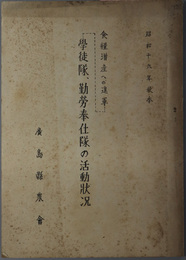 昭和十九年歳末
食糧増産への進軍
學徒隊、勤労奉仕隊の活動狀况
廣島縣農會